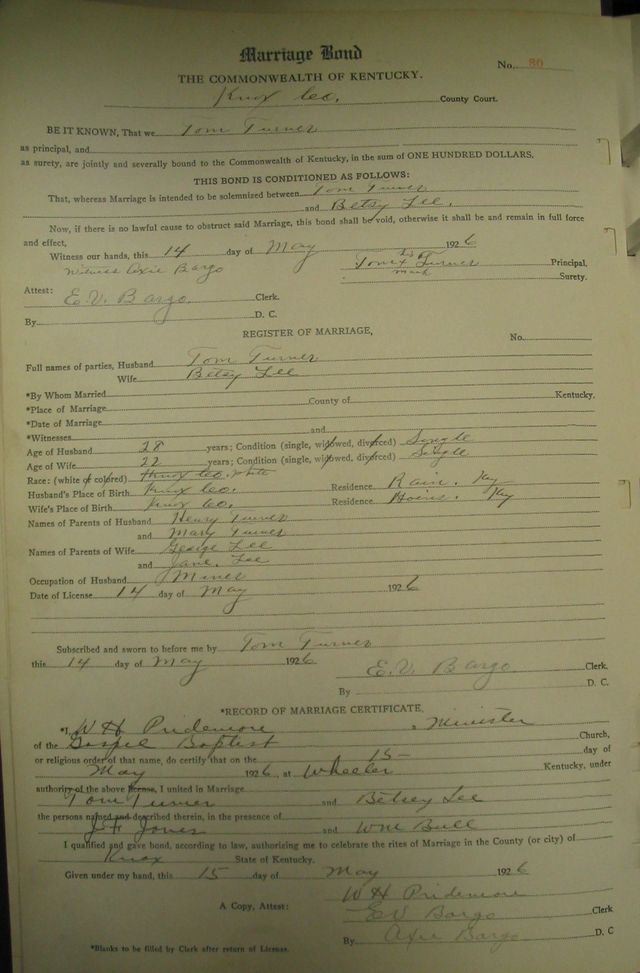 Marriage Bond
No. 80
THE COMMONWEALTH OF KENTUCKY.
Knox Co. County Court.
BE IT KNOWN, That we Tom Turner
as principal, and
as surety, are jointly and severally bound to the Commonwealth of Kentucky, in the sum of ONE HUNDRED DOLLARS.
THIS BOND IS CONDITIONED AS FOLLOWS:
That, whereas Marriage is intended to be solemnized between Tom Turner
and Betsy Lee.
Now, if there is no lawful cause to obstruct said Marriage, this bond shall be void, otherwise it shall be and remain in full force
and effect,
Witness our hands, this 14 day of May 1926
Witness Axie Bargo Tom x Turner Principal.
his mark
Surety.
Attest: E.V. Bargo Clerk.
By D. C.
REGISTER OF MARRIAGE, No.
Full names of parties, Husband Tom Turner
Wife Betsy Lee
*By Whom Married
*Place of Marriage County of Kentucky.
*Date of Marriage
*Witnesses and
Age of Husband 28 years; Condition (single, widowed, divorced) Single
Age of Wife 22 years; Condition (single, widowed, divorced) Single
Race: (white or colored) Knox Co. White
Husband's Place of Birth Knox Co. Residence Rain, Ky
Wife's Place of Birth Knox Co. Residence Ky
Names of Parents of Husband Henry Turner
and Mary Turner
Names of Parents of Wife George Lee
and Jane Lee
Occupation of Husband Miner
Date of License 14 day of May 1926
Subscribed and sworn to before me by Tom Turner
this 14 day of May 1926 E.V. Bargo Clerk.
By D. C.
*RECORD OF MARRIAGE CERTIFICATE,
*I, W H Pridemore, Minister
of the Gospel Baptist Church,
or religious order of that name, do certify that on the 15 day of
May 1926, at Wheeler Kentucky, under
authority of the above license, I united in Marriage
Tom Turner and Betsey Lee
the persons named and described therein, in the presence of
J F Jones and Wm Bull
I qualified and gave bond, according to law, authorizing me to celebrate the rites of Marriage in the County (or city) of
Knox State of Kentucky.
Given under my hand, this 15 day of May 1926
W H Pridemore
A Copy, Attest: E V Bargo Clerk
By Axie Bargo D. C
*Blanks to be filled by Clerk after return of License.